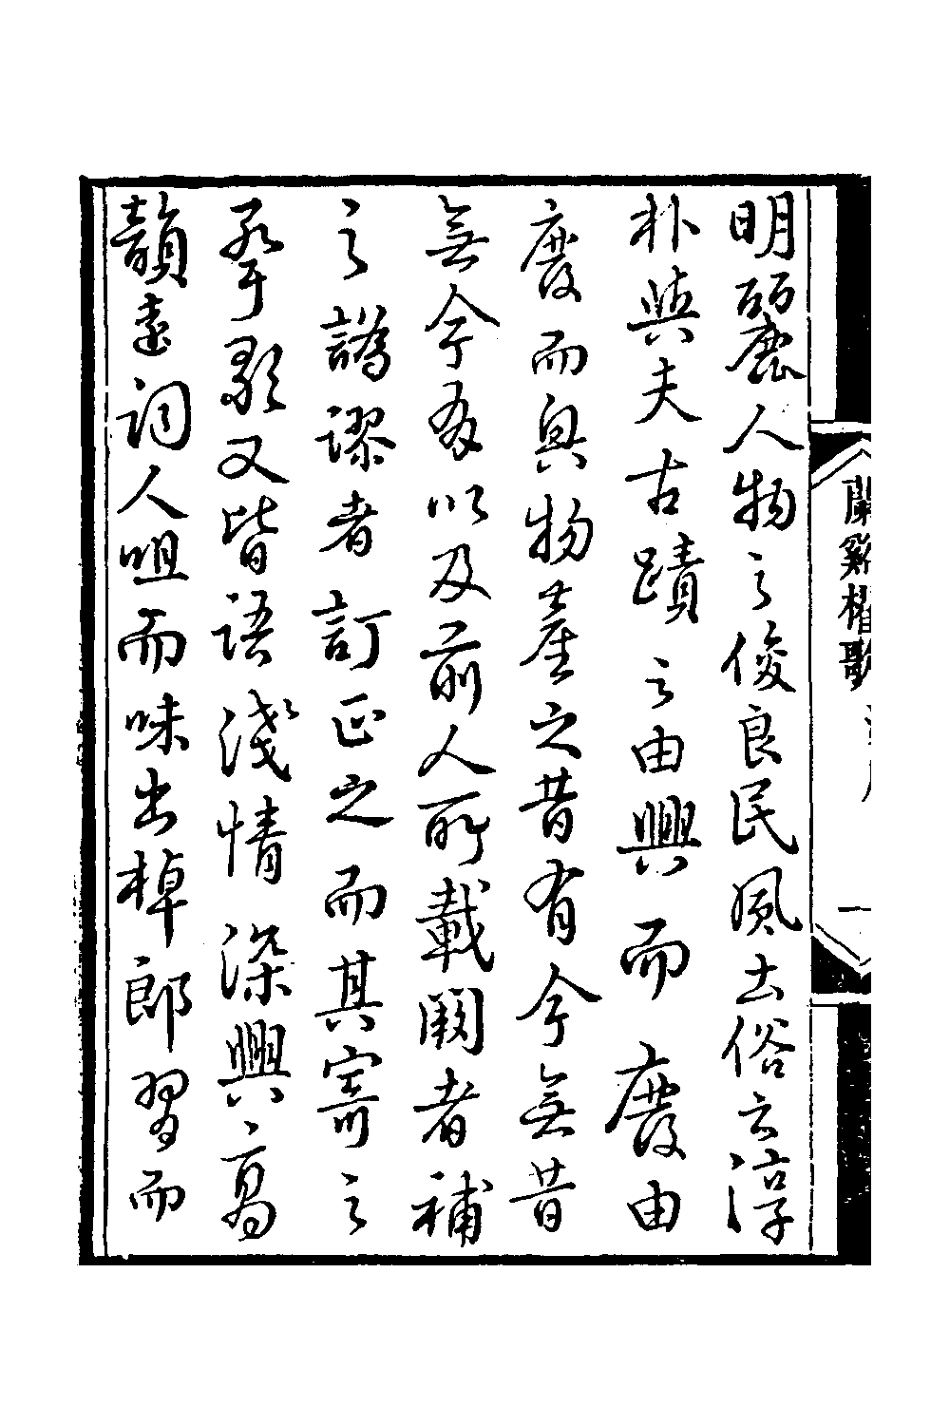 明麗人物之俊良民風土俗之淳
朴與夫古蹟之由興而廢由
廢而興物產之昔有今無昔
無今有以及前人所載闕者補
之譌謬者訂正之而其寄之
於歌又皆語淺情深興高
韻遠詞人咀而味出棹郎習而
蘭谿櫂歌
一